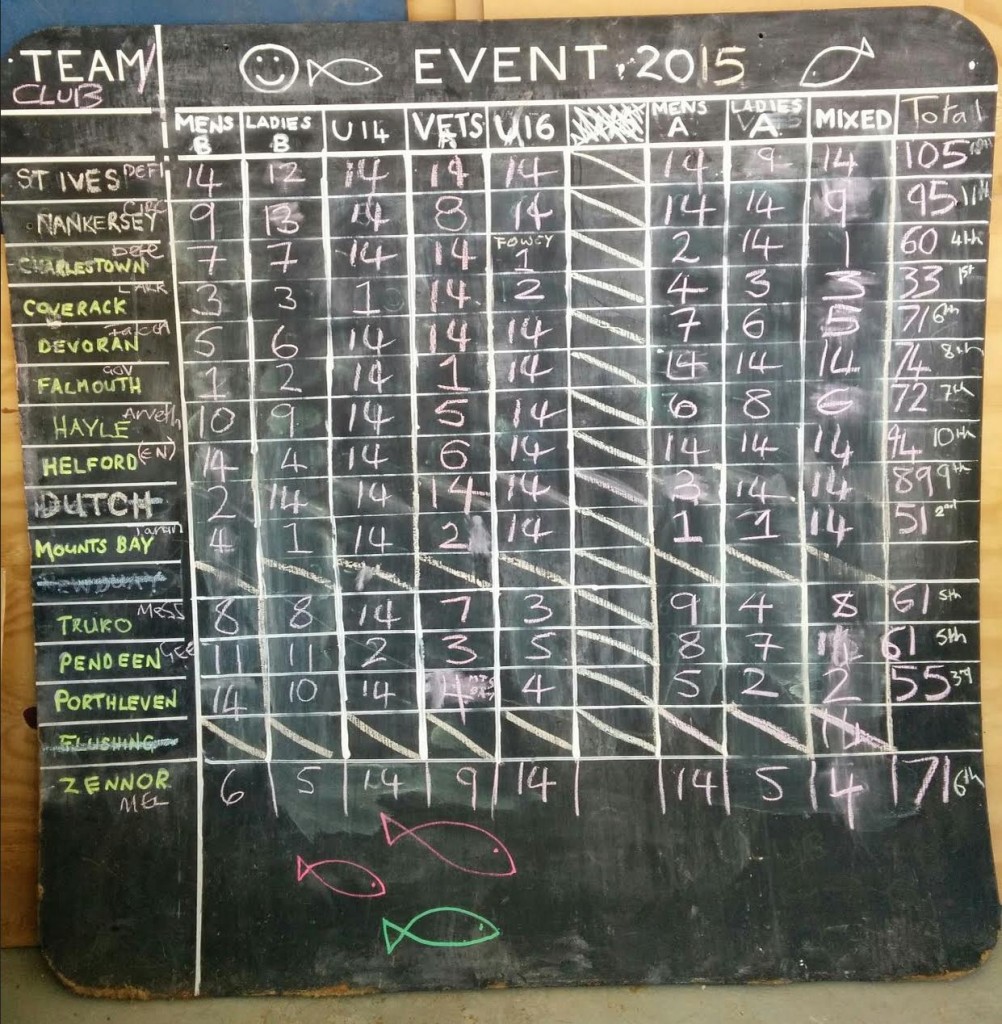 TEAM/ EVENT 2015
CLUB
MENS B LADIES B U14 VETS A U16 MENS A LADIES A MIXED Total
ST IVES DEFI 14 12 14 14 14 14 9 14 105
NANKERSEY 9 13 14 8 14 14 14 9 95 11th
CHARLESTOWN 7 7 14 14 FOWEY 1 2 14 1 60 4th
COVERACK 3 3 1 14 2 4 3 3 33 1st
DEVORAN 5 6 14 14 14 7 6 5 71 6th
FALMOUTH GOV 1 2 14 1 14 14 14 14 74 8th
HAYLE 10 9 14 5 14 6 8 6 72 7th
HELFORD (EN) 14 4 14 6 14 14 14 14 94 10th
DUTCH 2 14 14 14 14 3 14 14 89 9th
MOUNTS BAY 4 1 14 2 14 1 1 14 51 2nd
TRURO MESS 8 8 14 7 3 9 4 8 61 5th
PENDEEN GEE 11 11 2 3 5 8 7 61 5th
PORTHLEVEN 14 10 14 4 4 5 2 2 55 3rd
FLUSHING
ZENNOR 6 5 14 9 14 14 5 4 71 6th